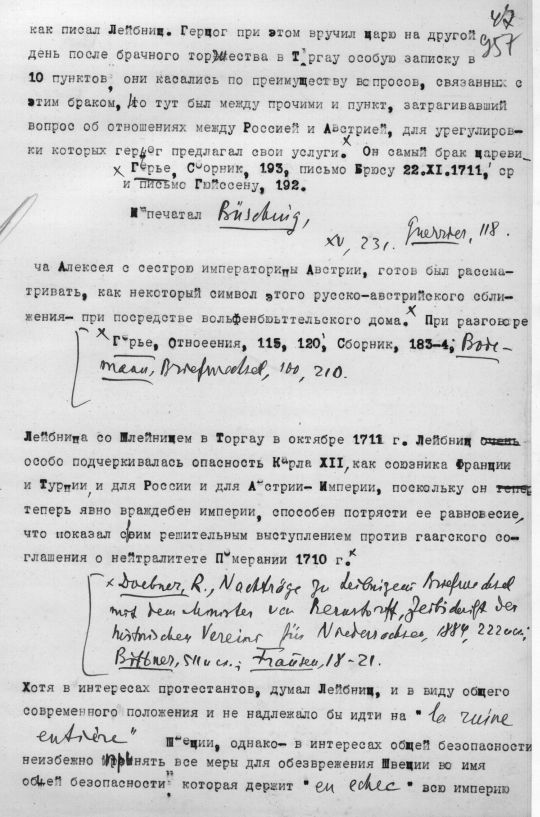 47
957
как писал Лейбниц. Герцог при этом вручил царю на другой
день после брачного торжества в Торгау особую записку в
10 пунктов, они касались по преимуществу вопросов, связанных с
этим браком, но тут был между прочими и пункт, затрагивавший
вопрос об отношениях между Россией и Австрией, для урегулиров-
ки которых герцог предлагал свои услуги.x Он самый брак цареви-
x Герье, Сборник, 193, письмо Брюсу 22.XI.1711, ср
и письмо Гюйссену, 192.
Напечатал Büsching,
XV, 231. Guerrier, 118.
ча Алексея с сестрою императорицы Австрии, готов был рассма-
тривать, как некоторый символ этого русско-австрийского сбли-
жения- при посредстве вольфенбюттельского дома.x При разговоре
x Герье, Отношения, 115, 120, Сборник, 183-4; Bode-
mann, Briefwechsel, 100, 210.
Лейбница со Шлейницем в Торгау в октябре 1711 г. Лейбниц очень
особо подчеркивалась опасность Карла XII, как союзника Франции
и Турции, и для России и для Австрии- Империи, поскольку он тепер
теперь явно враждебен империи, способен потрясти ее равновесие,
что показал своим решительным выступлением против гаагского со-
глашения о нейтралитете Померании 1710 г.x
x Doebner, R., Nachträge zu Leibnizens Briefwechsel
mit dem Minister von Bernstorff, Zeitschrift des
historischen Vereins für Niedersachsen, 1884, 222
Bittner, 511 Fransen, 18-21.
Хотя в интересах протестантов, думал Лейбниц, и в виду общего
современного положения и не надлежало бы идти на "la ruine
entière" Швеции, однако- в интересах общей безопасности
неизбежно принять все меры для обезврежения Швеции во имя
общей безопасности", которая держит "en echec" всю империю